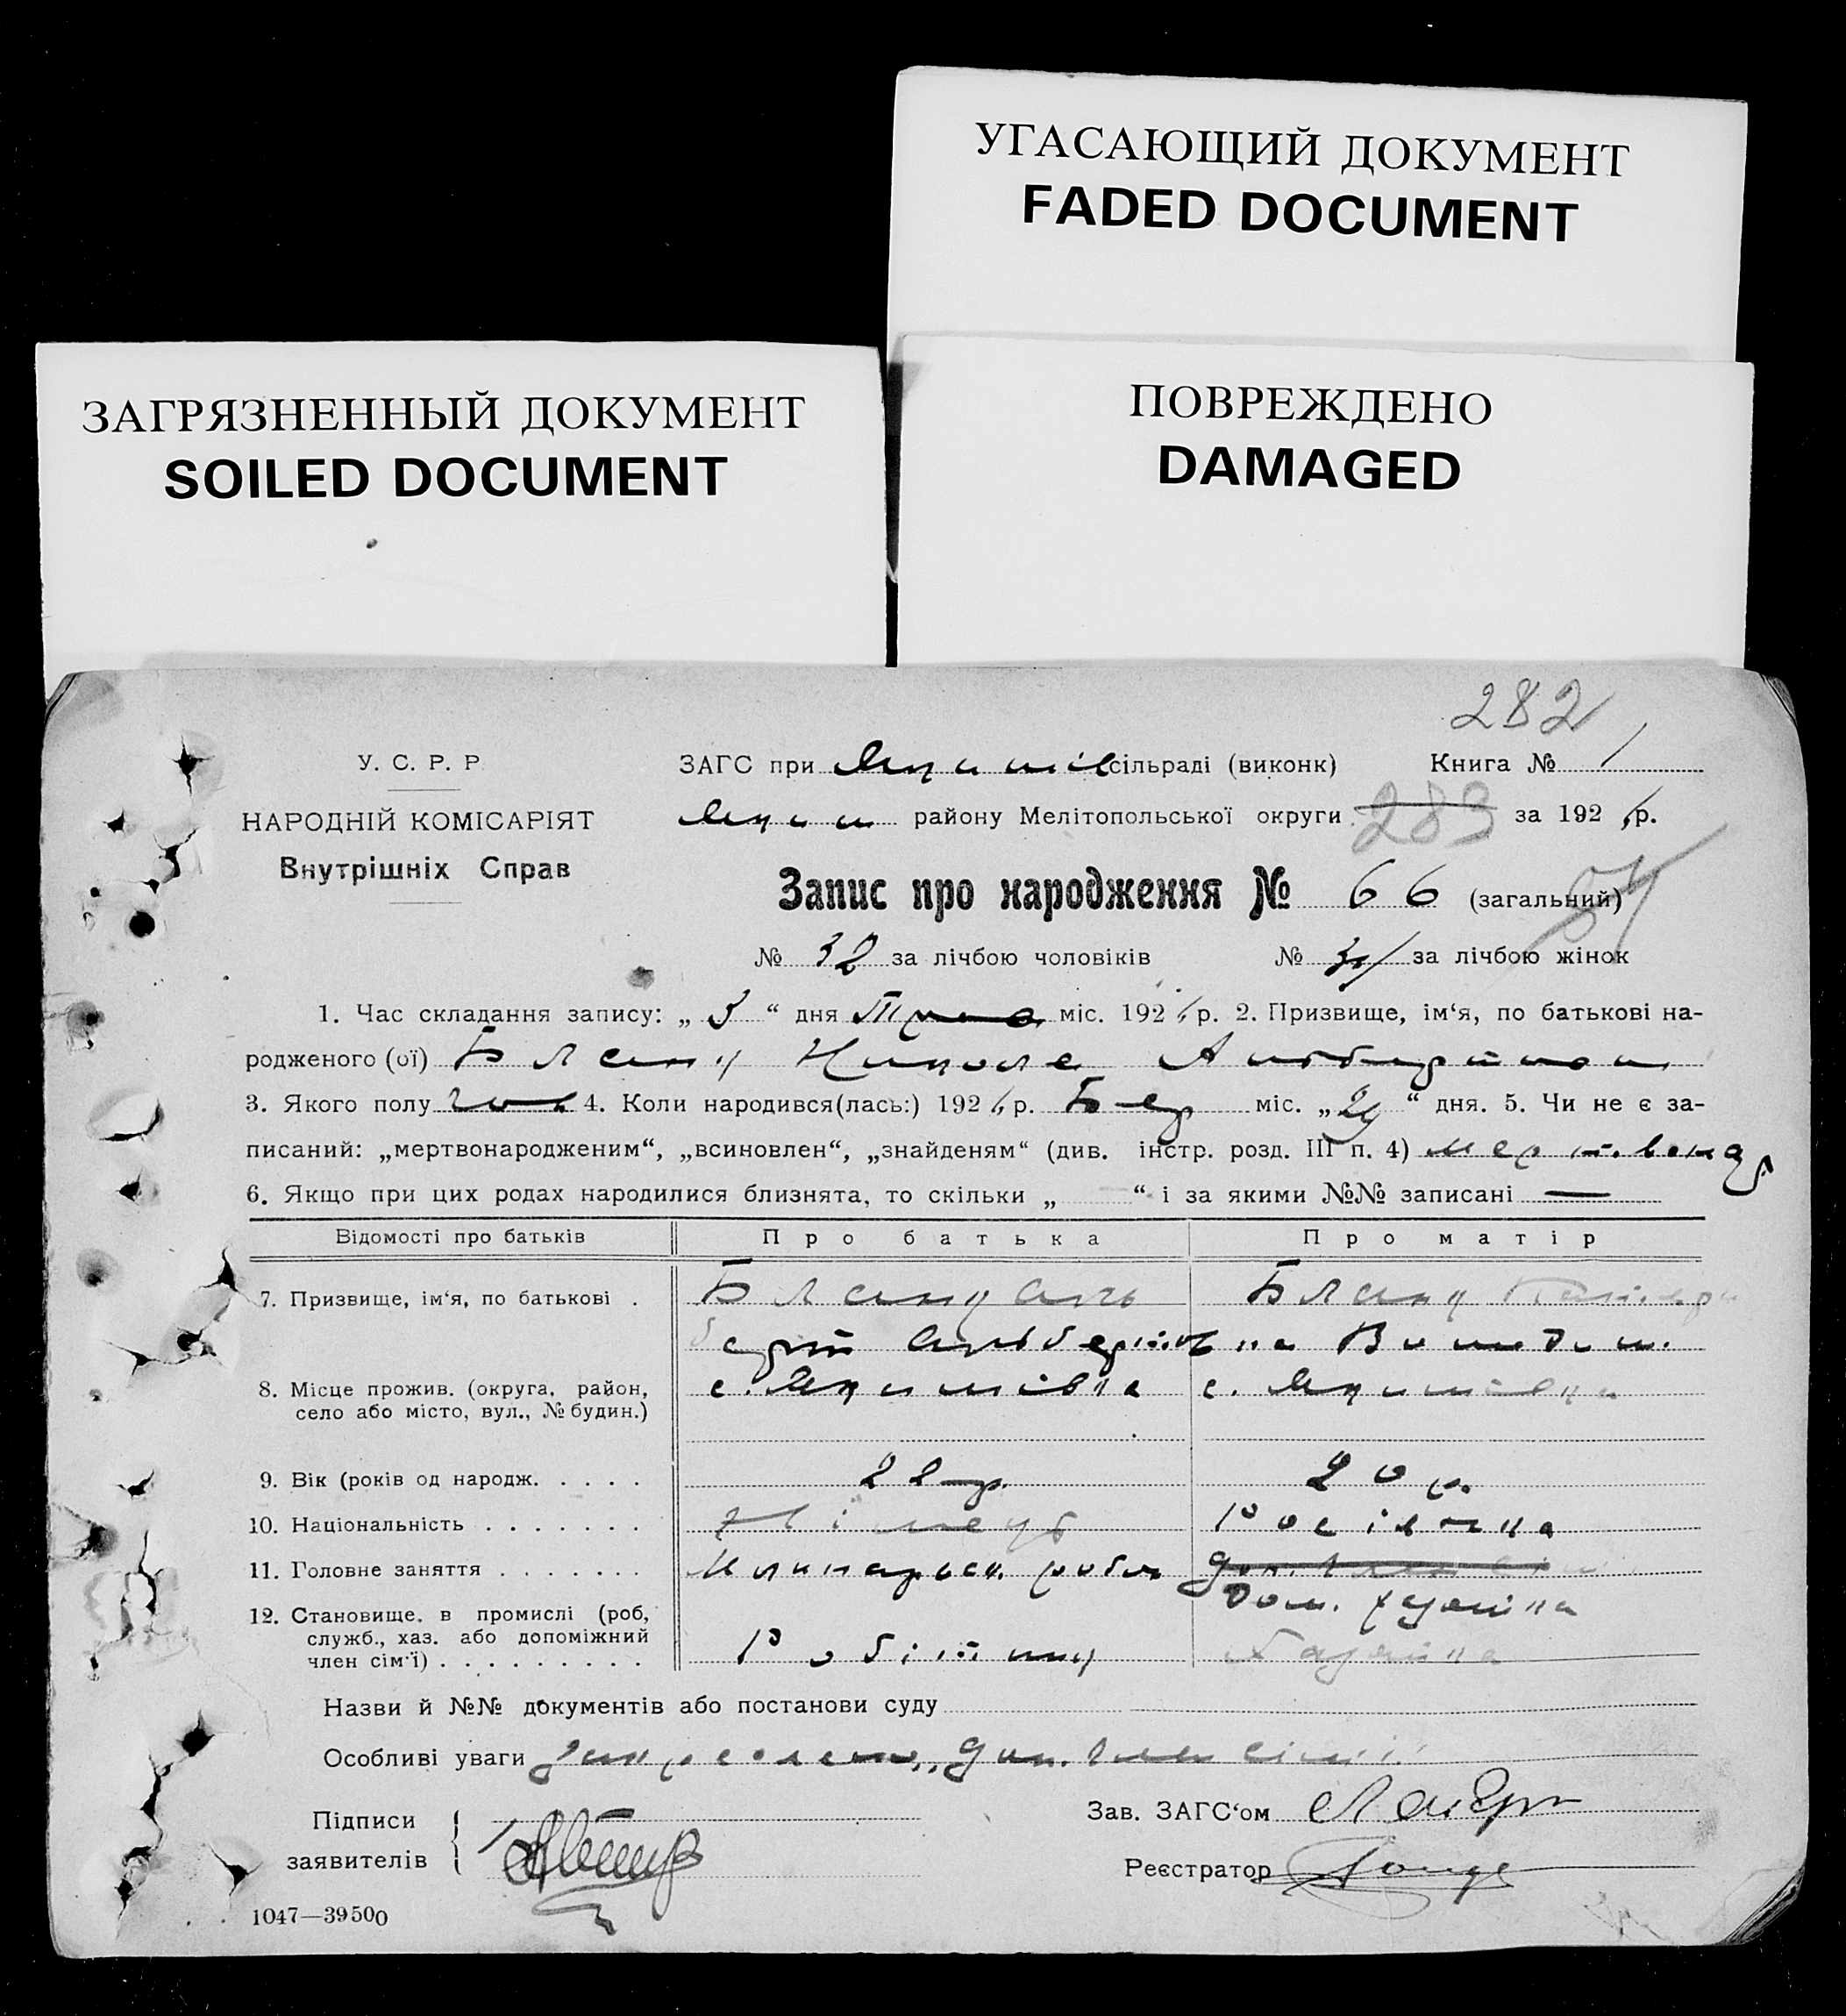 УГАСАЮЩИЙ ДОКУМЕНТ
FADED DOCUMENT
ЗАГРЯЗНЕННЫЙ ДОКУМЕНТ
SOILED DOCUMENT
ПОВРЕЖДЕНО
DAMAGED
282
У. С. Р. Р
ЗАГС при сільраді (виконк) Книга № 1
НАРОДНІЙ КОМІСАРІЯТ
району Мелітопольської округи 283 за 192 р.
Внутрішніх Справ
Запис про народження № 66 (загальний)
№ 32 за лічбою чоловіків № за лічбою жінок
1. Час складання запису: „ 3 “ дня міс. 192 р. 2. Призвище, ім‘я, по батькові на-
родженого (ої) Бланк Альбертов
3. Якого полу чол 4. Коли народився(лась:) 192 р. Бер міс. „ “ дня. 5. Чи не є за-
писаний: „мертвонародженим“, „всиновлен“, „знайденям“ (див. інстр. розд. III п. 4)
6. Якщо при цих родах народилися близнята, то скільки „ — “ і за якими №№ записані —
Відомості про батьків Про батька Про матір
7. Призвище, ім‘я, по батькові . Бланк Аль Бланк
берт Альбертов
8. Місце прожив. (округа, район, с. Якимівка с. Якимівка
село або місто, вул., № будин.)
9. Вік (років од народж. . . . . 22 р. 20 р.
10. Національність . . . . . . . Німець Росіянка
11. Головне заняття . . . . . . .
Дом. хазяйка
12. Становище. в промислі (роб,
служб., хаз. або допоміжний
член сім‘ї) . . . . . . . . . Робітник Хазяйка
Назви й №№ документів або постанови суду
Особливі уваги закреслено „доп. член сім'ї“
Підписи
заявителів
Зав. ЗАГС‘ом
Реєстратор
1047—39500